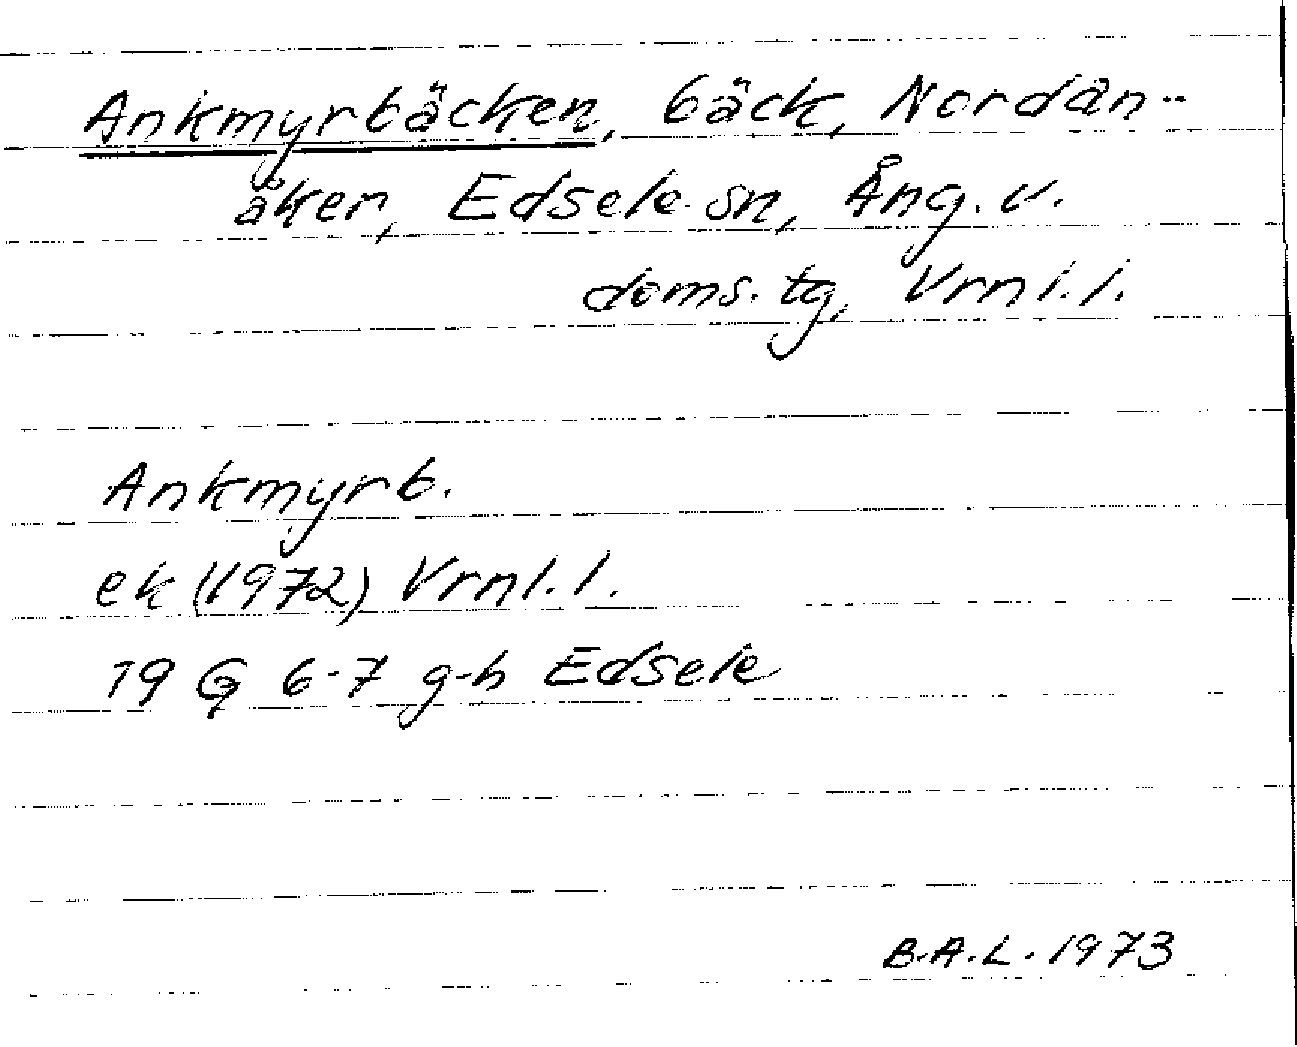 Ankmyrbäcken, bäck, Nordan-
åker, Edsele sn, Ång. v.
doms. tg, Vrnl. l.
Ankmyrb.
ek (1972) Vrnl. l.
19 G 6-7 g-h Edsele
B.A.L. 1973